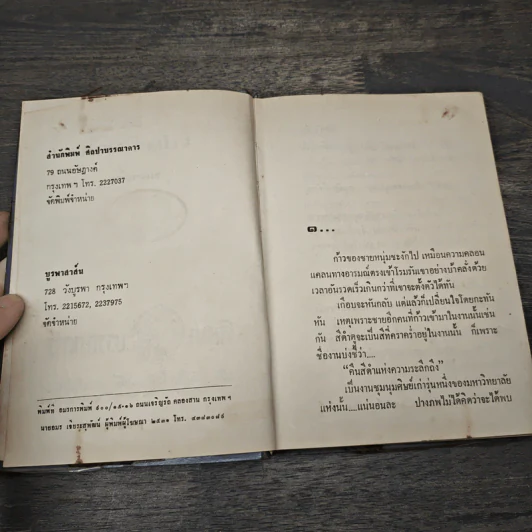 สำนักพิมพ์ ศิลปาบรรณาคาร
79 ถนนอัษฎางค์
กรุงเทพ ฯ โทร. 2227037
จัดพิมพ์จำหน่าย
บูรพาสาส์น
728 วังบูรพา กรุงเทพฯ
โทร. 2215672, 2237975
จัดจำหน่าย
พิมพ์ที่ อมรการพิมพ์ ๕๐๐/๑๕-๑๖ ถนนเจริญรัถ คลองสาน กรุงเทพ ฯ
นายอมร ผู้พิมพ์ผู้โฆษณา ๒๕๓๑ โทร.
๑...
ก้าวของชายหนุ่มชะงักไป เหมือนความคลอน
แคลนทางอารมณ์ตรงเข้าโรมรันเขาอย่างบ้าคลั่งด้วย
เวลาอันรวดเร็วเกินกว่าที่เขาจะตั้งตัวได้ทัน
เกือบจะหันกลับ แต่แล้วก็เปลี่ยนใจโดยกะทัน
หัน เหตุเพราะชายอีกคนที่ก้าวเข้ามาในงานนั้นเช่น
กัน สีดำดูจะเป็นสีที่คราคร่ำอยู่ในงานนั้น ก็เพราะ
ชื่องานบ่งชี้ว่า....
“คืนสีดำแห่งความระลึกถึง”
เป็นงานชุมนุมศิษย์เก่ารุ่นหนึ่งของมหาวิทยาลัย
แห่งนั้น...แน่นอนละ ปางภพไม่ได้คิดว่าจะได้พบ